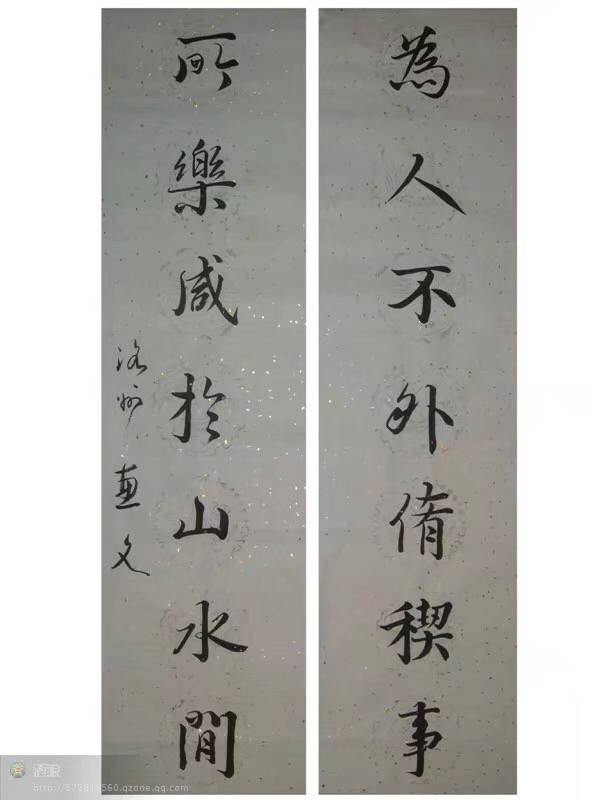 為人不外脩稧事
所樂咸於山水間
洺州 惠文
洒脱
http://572819560.qzone.qq.com